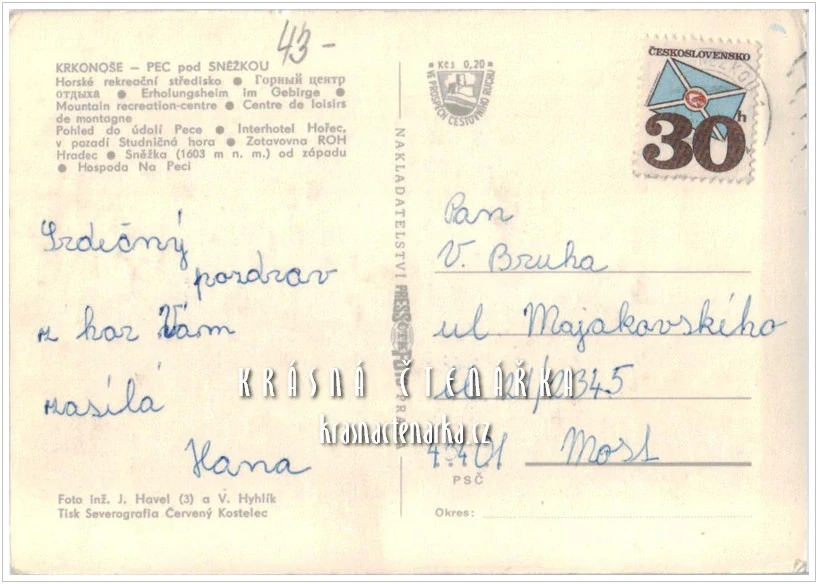 43-
KRKONOŠE – PEC pod SNĚŽKOU
Horské rekreační středisko ● Горный центр
отдыха ● Erholungsheim im Gebirge ●
Mountain recreation-centre ● Centre de loisirs
de montagne
Pohled do údolí Pece ● Interhotel Hořec,
v pozadí Studničná hora ● Zotavovna ROH
Hradec ● Sněžka (1603 m n. m.) od západu
● Hospoda Na Peci
Srdečný
pozdrav
z hor Vám
zasílá
Hana
Foto inž. J. Havel (3) a V. Hyhlík
Tisk Severografia Červený Kostelec
NAKLADATELSTVÍ PRESSFOTO PRAHA
Kčs 0,20
VE PROSPĚCH CESTOVNÍHO RUCHU
ČESKOSLOVENSKO
30h
Pan
V. Bruha
ul Majakovského
2345
434 01 Most
PSČ
Okres:
KRÁSNÁ ČTENÁŘKA
krasnactenarka.cz